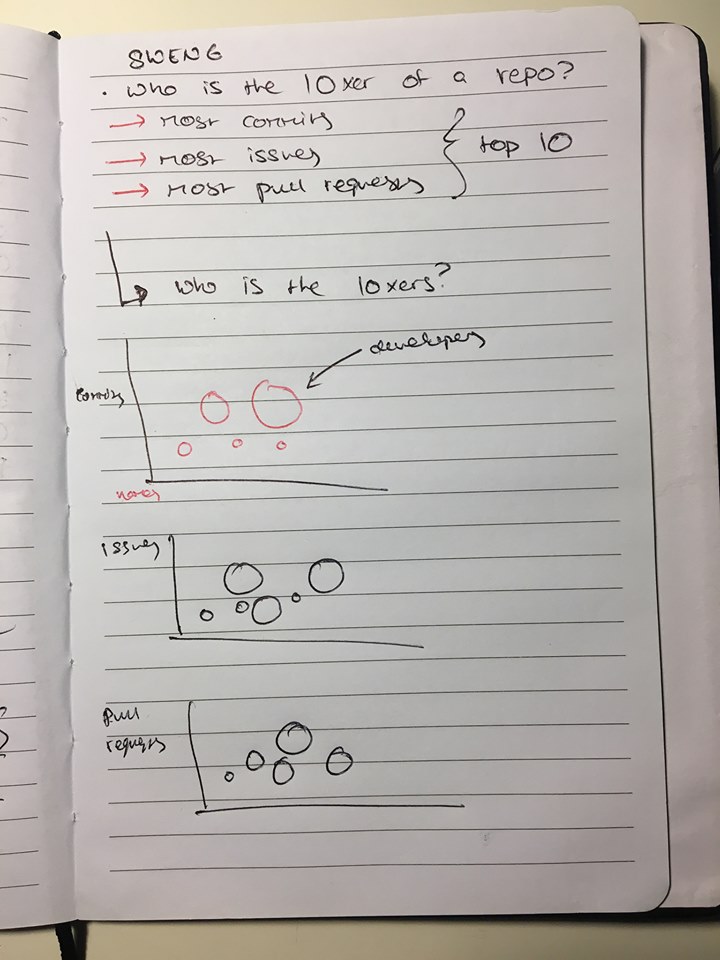 SWENG
· Who is the 10xer of a repo?
→ Most commits
→ most issues
→ Most pull requests
top 10
Who is the 10xers?
developers
commits
names
issues
pull
requests